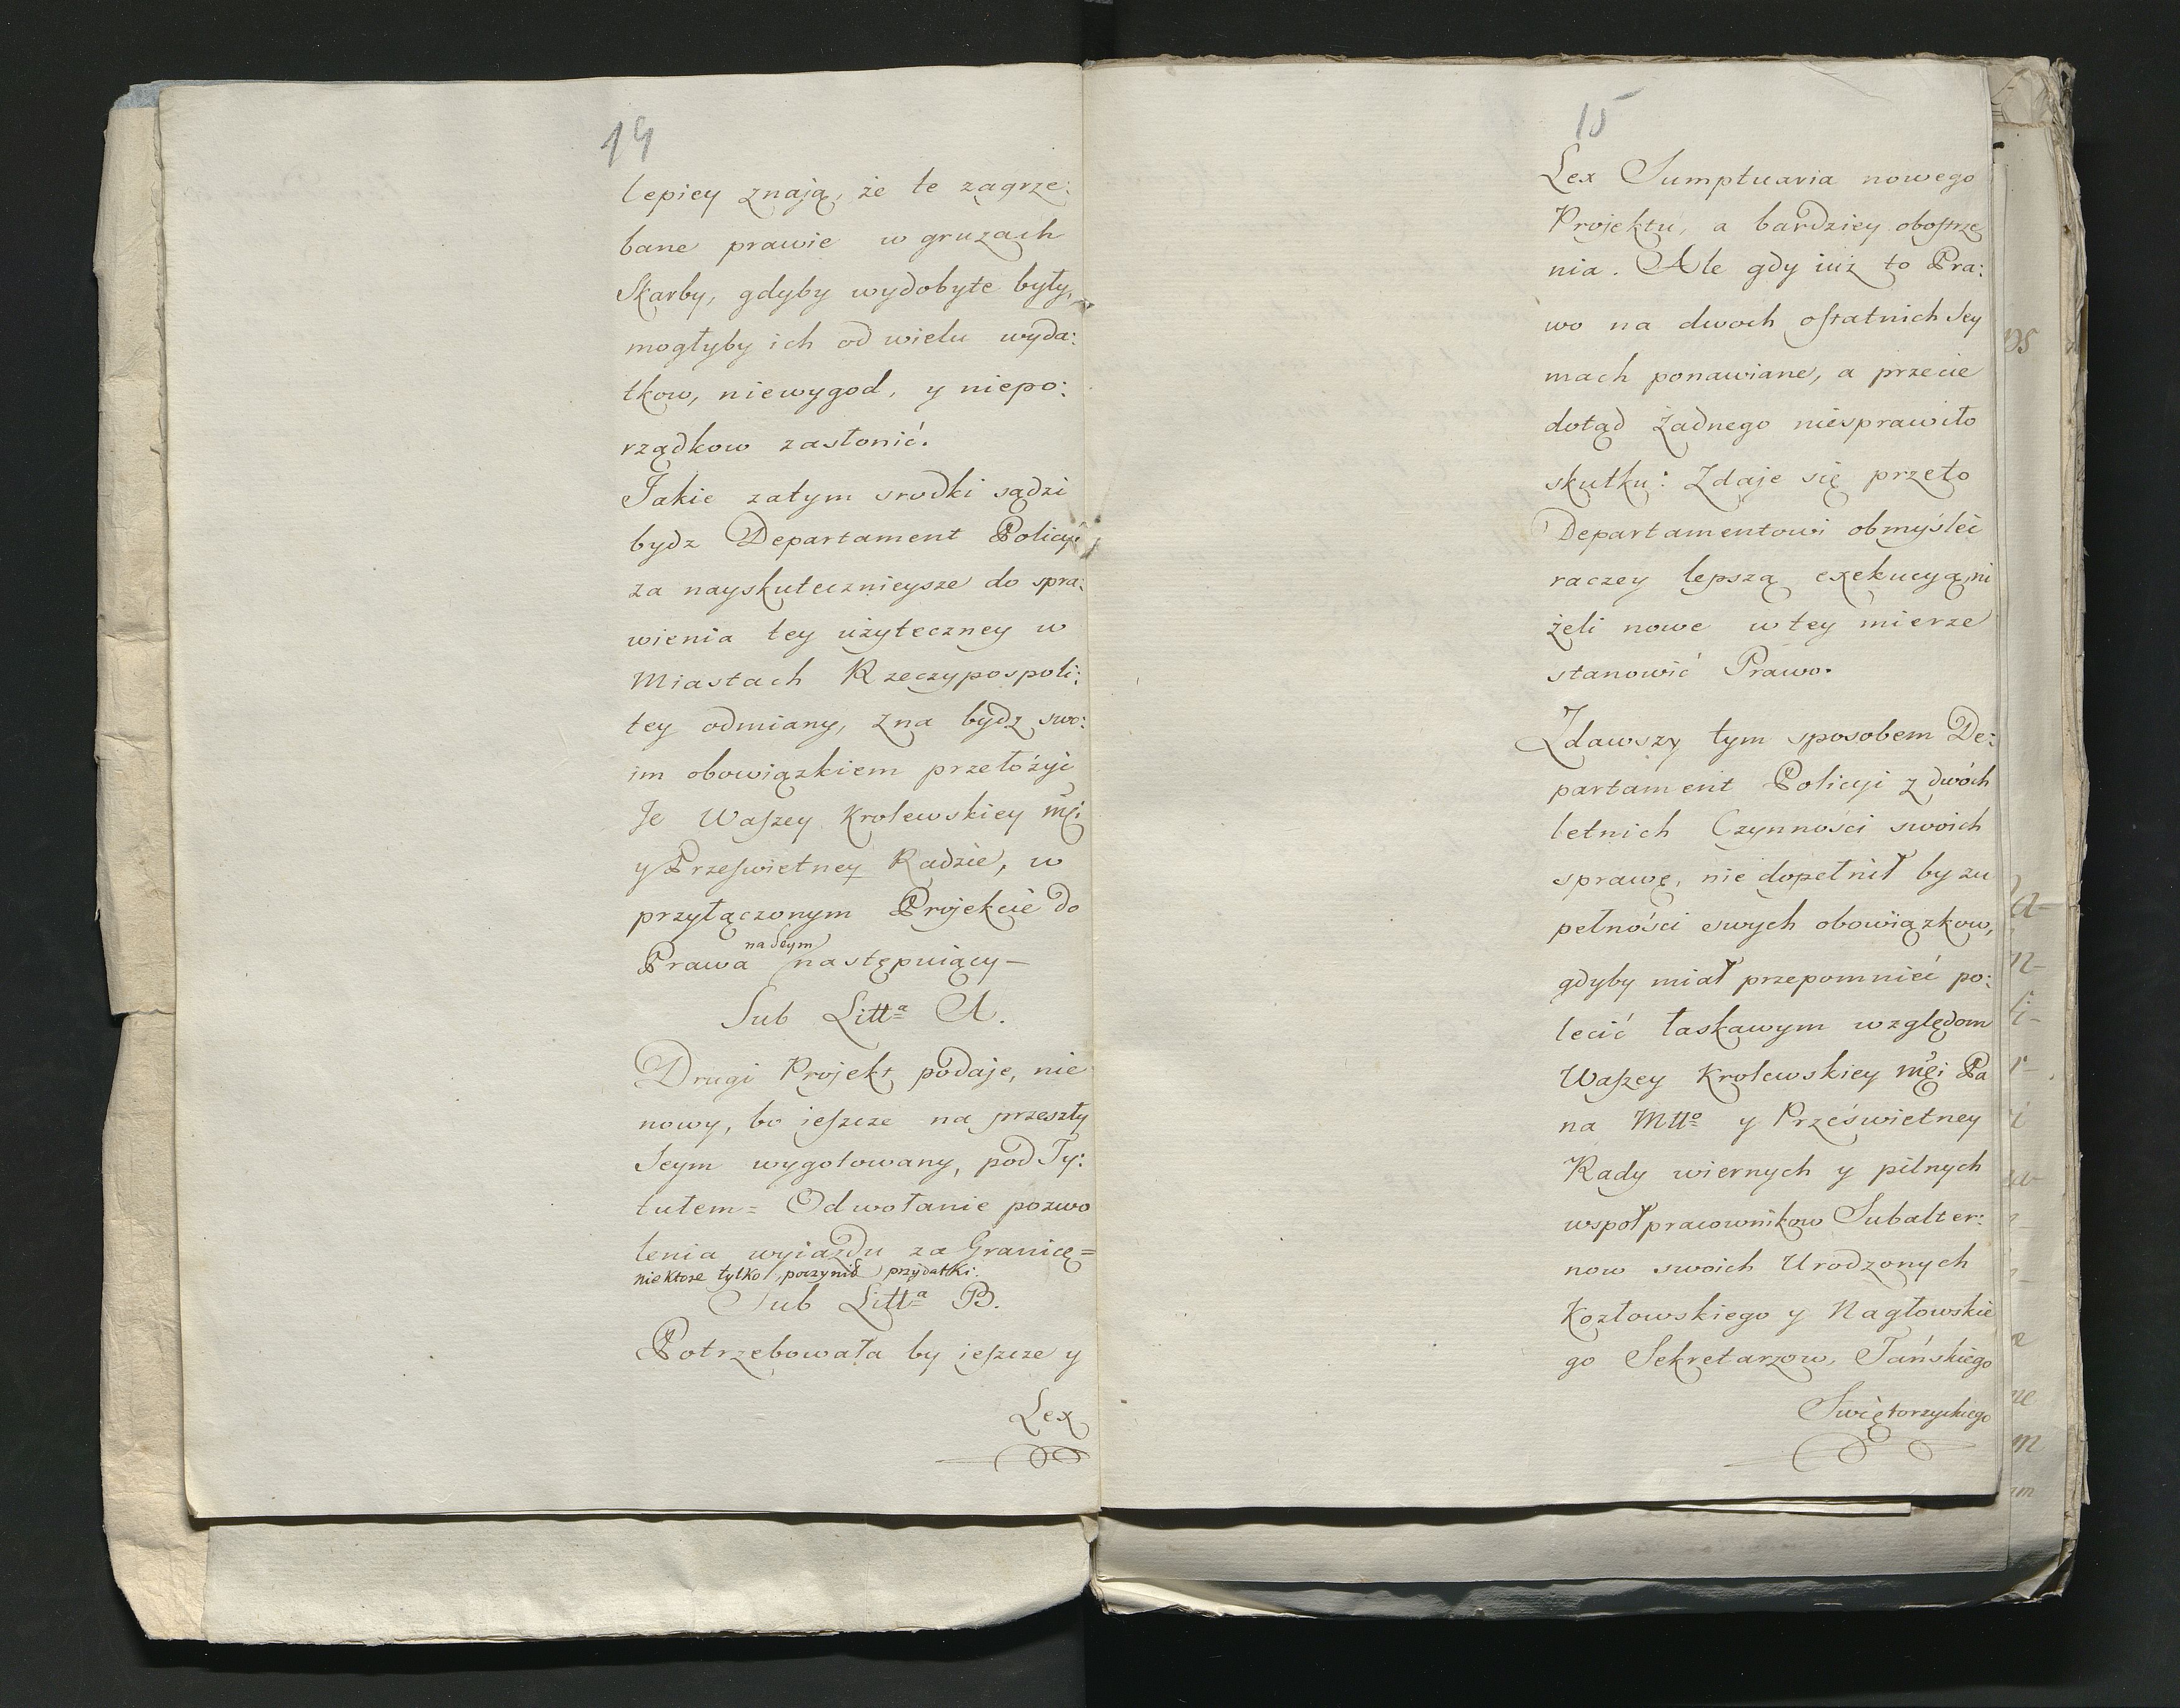 14
lepiey znają, że te zagrze:
bane prawie w gruzach
Skarby, gdyby wydobyte były,
mogłyby ich od wielu wyda:
tkow, niewygod, y niepo:
rządkow zasłonić.
Jakie zatym srodki sądzi
bydz Departament Policyi
za nayskutecznieysze do spra:
wienia tey użyteczney w
Miastach Rzeczypospoli:
tey odmiany, zna bydz swo:
im obowiązkiem przełożyć
Je Waſzey Krolewskiey
y Przeſwietney Radzie, w
przyłączonym Projekcie do
na Seym
Prawa następuiący —
Sub Littª A.
Drugi Projekt podaje, nie
nowy, bo ieſzcze na przeszły
Seym wygotowany, pod Ty:
tułem = Odwołanie pozwo
lenia wyiazdu za Granicę =
niektore tylko poczynił przydatki.
Sub Littª B.
Potrzebowała by ieſzcze y
Lex
15
Lex Sumptuaria nowego
Projektu, a bardziey oboſtrze
nia. Ale gdy iuż to Pra:
wo na dwoch oſtatnich Sey
mach ponawiane, a przecie
dotąd żadnego niesprawiło
skutku: Zdaje się przeto
Departamentowi obmyśleć
raczey lepszą exekucyą, ni
żeli nowe w tey mierze
stanowić Prawo.
Zdawszy tym sposobem De:
partament Policyi z dwóch
letnich Czynności swoich
sprawę, nie dopełnił by zu
pełności swych obowiązkow,
gdyby miał przepomnieć po:
lecić łaskawym względom
Waſzey Krolewskiey Mći Pa
na Mttº y Prześwietney
Rady wiernych y pilnych
wspołpracownikow Subalter:
now swoich Urodzonych
Kozłowskiego y Nagłowskie
go Sekretarzow, Tańskiego
Swiętorzyckiego